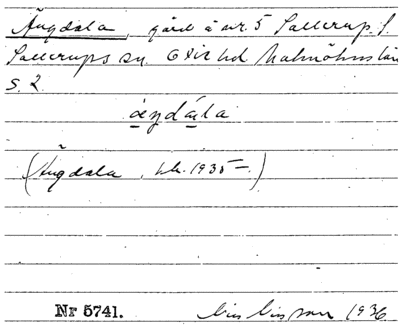 Ängdala, gård å nr. 5 Sallerup. S.
Sallerups sn. Oxie hd Malmöhus län
S. 2
äŋdála
(Ängdala, 1935 —.)
Nr 5741. 1936